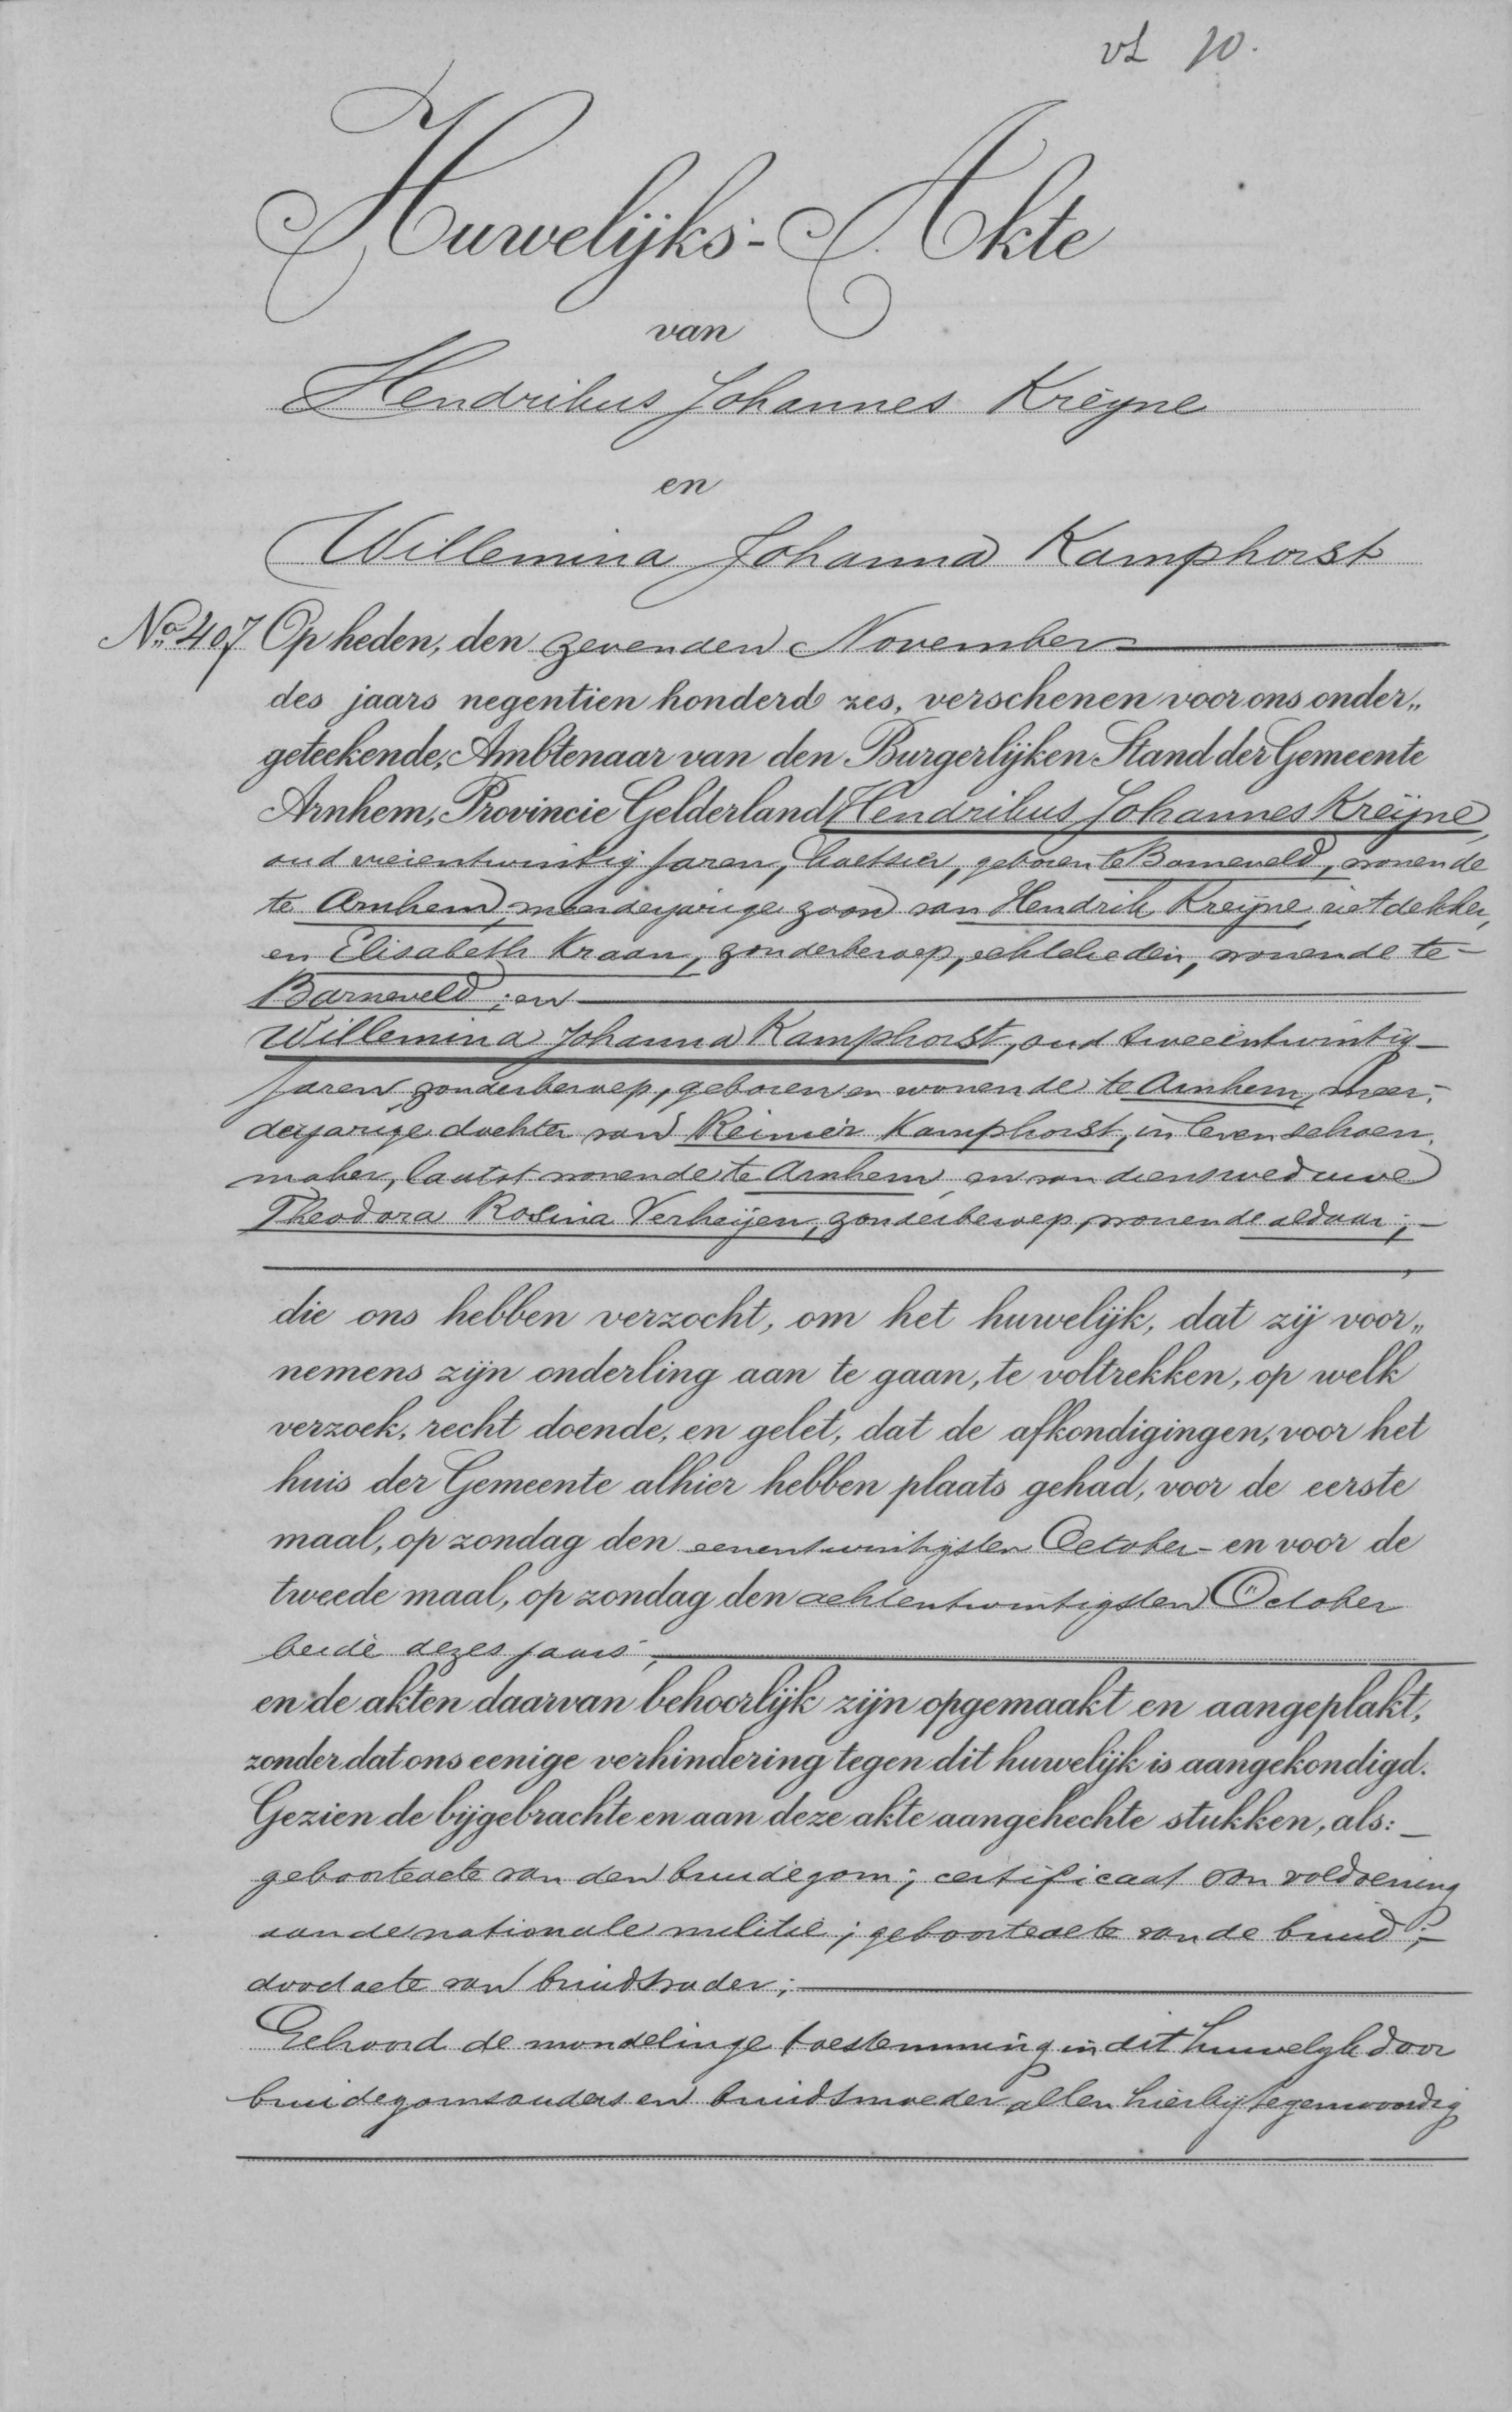 vL 10.
Huwelijks-Akte
van
Hendrikus Johannes Kreijne
en
Willemina Johanna Kamphorst
No. 407 Op heden, den zevenden November
des jaars negentien honderd zes, verschenen voor ons onder„
geteekende, Ambtenaar van den Burgerlijken Stand der Gemeente
Arnhem, Provincie Gelderland Hendrikus Johannes Kreijne,
oud vierentwintig jaren, koetsier, geboren te Barneveld, wonende
te Arnhem, meerderjarige zoon van Hendrik Kreijne, rietdekker,
en Elisabeth Kraan, zonder beroep, echtelieden, wonende te
Barneveld; en
Willemina Johanna Kamphorst, oud tweeëntwintig
jaren, zonder beroep, geboren en wonende te Arnhem, meer-
derjarige dochter van Reinier Kamphorst, in leven schoen-
maker, laatst wonende te Arnhem en van diens weduwe
Theodora Rosina Verheijen, zonder beroep, wonende aldaar;
die ons hebben verzocht, om het huwelijk, dat zij voor„
nemens zijn onderling aan te gaan, te voltrekken, op welk
verzoek, recht doende, en gelet, dat de afkondigingen, voor het
huis der Gemeente alhier hebben plaats gehad, voor de eerste
maal, op zondag den eenentwintigsten October en voor de
tweede maal, op zondag den achtentwintigsten October
beide dezes jaars,
en de akten daarvan behoorlijk zijn opgemaakt en aangeplakt,
zonder dat ons eenige verhindering tegen dit huwelijk is aangekondigd.
Gezien de bijgebrachte en aan deze akte aangehechte stukken, als:
geboorteacte van den bruidegom; certificaat van voldoening
aan de nationale militie; geboorteacte van de bruid;
doodacte van bruidsvader;
Gehoord de mondelinge toestemming in dit huwelijk door
bruidegomsouders en bruidsmoeder allen hierbij tegenwoordig